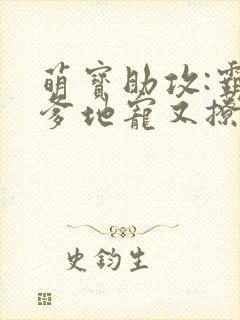 萌寳助攻:霸
爹地寵又撩
史鈞生